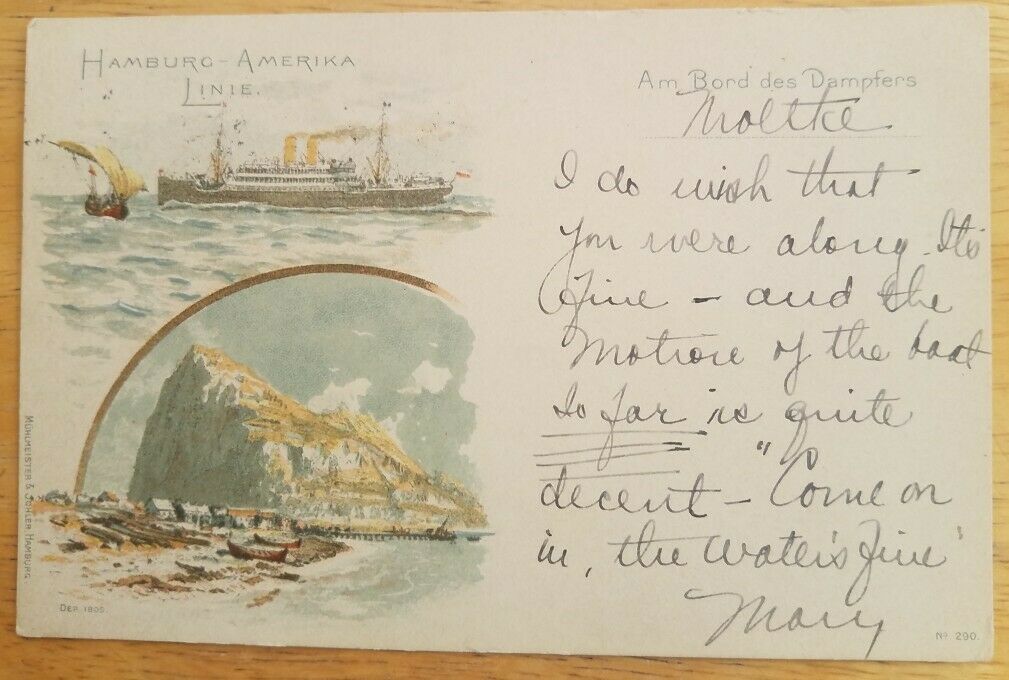 HAMBURG-AMERIKA
LINIE.
Am Bord des Dampfers
Moltke
I do wish that
you were along. It's
fine - and the
motion of the boat
so far is quite
decent - "Come on
in, the water's fine"
Mary
MÜHLMEISTER & JOHLER HAMBURG.
DEP. 1895.
No 290.